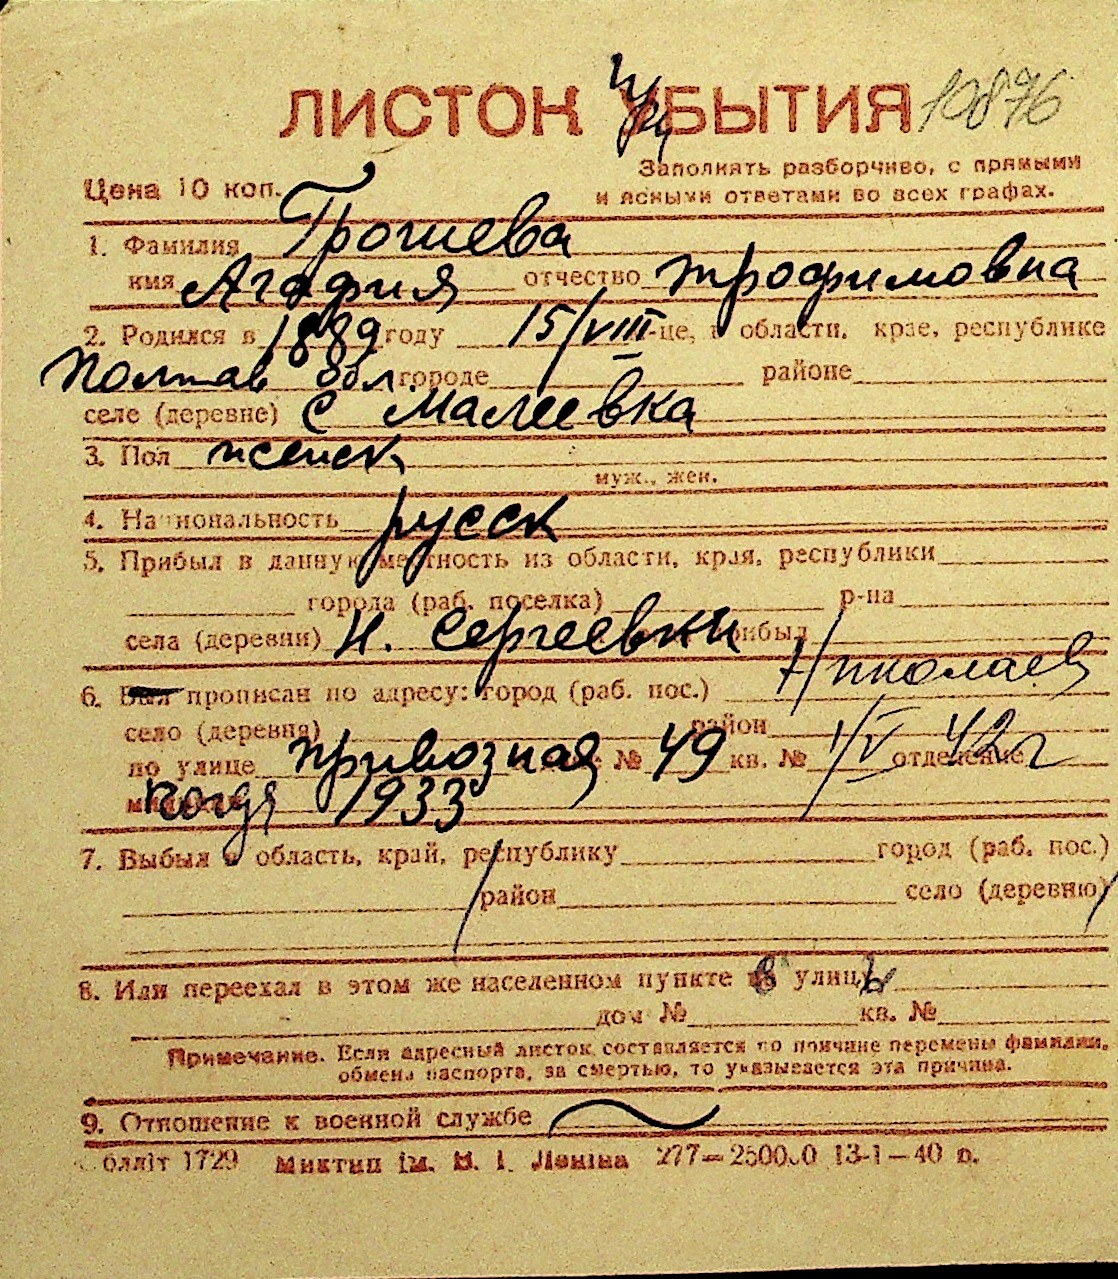 ЛИСТОК УБЫТИЯ 10876
Заполнять разборчиво, с прямыми
Цена 10 коп. и ясными ответами во всех графах.
1. Фамилия Грошева
имя Агафия отчество Трофимовна
2. Родился в 1889 году 15/VIII -це, в области, крае, республике
Полтав обл городе районе
селе (деревне) с Малеевка
3. Пол женск
муж., жен.
4. Национальность русск
5. Прибыл в данную местность из области, края, республики
города (раб. поселка) р-на
села (деревни) Н. Сергеевки прибыл
6. Был прописан по адресу: город (раб. пос.) Николаев
село (деревня) район
по улице привозная № 49 кв. № 1/V 42г отделение
1933
7. Выбыл в область, край, республику город (раб. пос.)
район село (деревню)
8. Или переехал в этом же населенном пункте в улицы
дом № кв. №
Примечание. Если адресный листок составляется по причине перемены фамилии,
обмена паспорта, за смертью, то указывается эта причина.
9. Отношение к военной службе
Облліт 1729 Миктип ім. В. І. Леніна 277—250000 13-1—40 р.